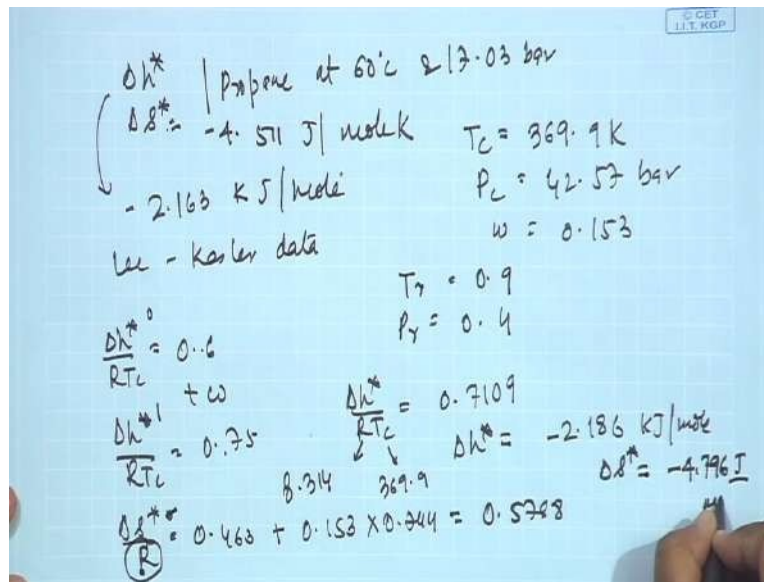 © CET
I.I.T. KGP
Δh* | Propane at 60°C & 17.03 bar
Δs* = -4.511 J/mole K
-2.163 KJ/mole
Tc = 369.9 K
Pc = 42.57 bar
ω = 0.153
Lee - Kesler data
Tr = 0.9
Pr = 0.4
Δh*⁰/RTc = 0.6
+ ω
Δh*¹/RTc = 0.75
Δh*/RTc = 0.7109
8.314 369.9
Δh* = -2.186 KJ/mole
Δs* = -4.796 J
Δs*/R = 0.463 + 0.153 × 0.744 = 0.5768